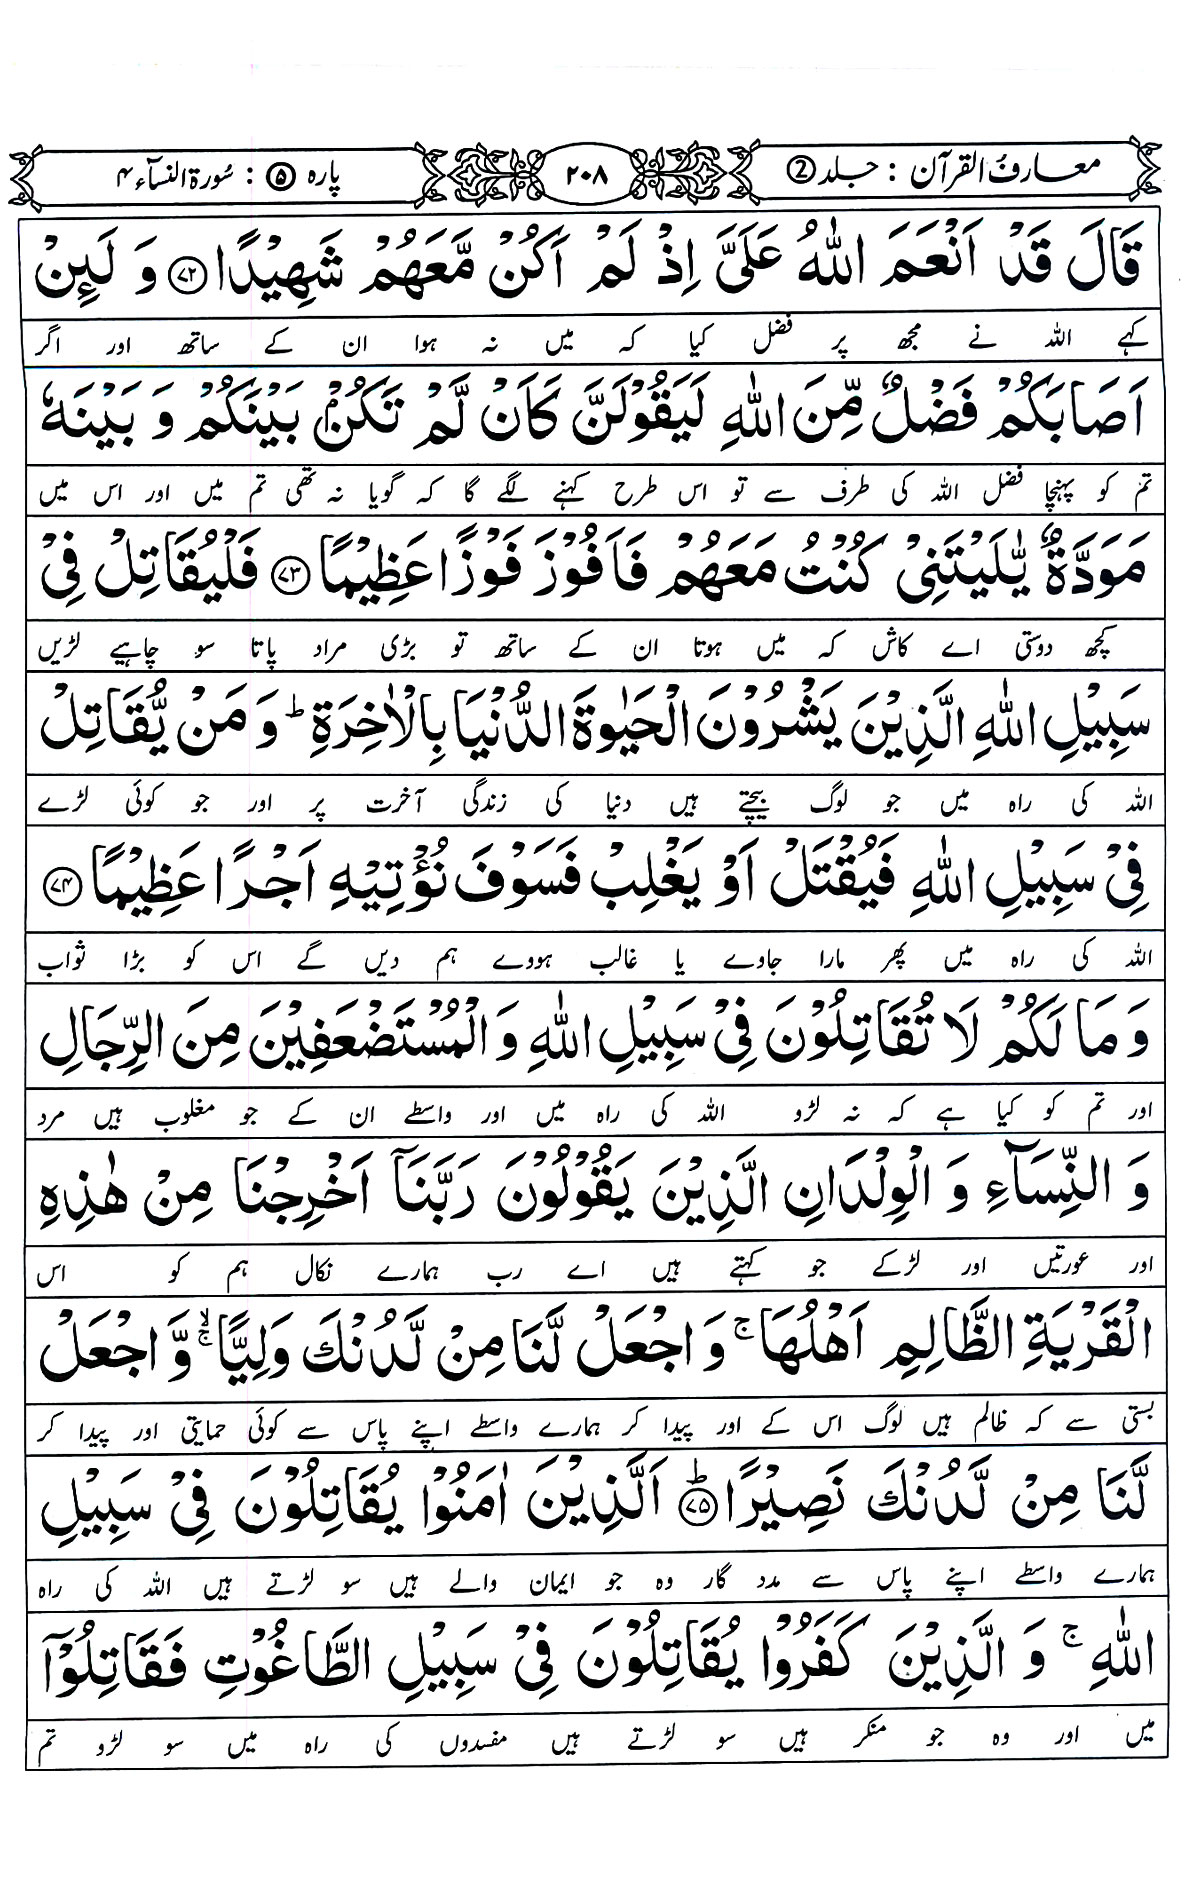 معارف القرآن : جلد 2
۲۰۸
پارہ ۵ : سُورۃ النسآء ۴
قَالَ قَدْ اَنْعَمَ اللّٰهُ عَلَیَّ اِذْ لَمْ اَكُنْ مَّعَهُمْ شَهِیْدًا ۷۲ وَ لَىِٕنْ
کہے اللہ نے مجھ پر فضل کیا کہ میں نہ ہوا ان کے ساتھ اور اگر
اَصَابَكُمْ فَضْلٌ مِّنَ اللّٰهِ لَیَقُوْلَنَّ كَاَنْ لَّمْ تَكُنْۢ بَیْنَكُمْ وَ بَیْنَهٗ
تم کو پہنچا فضل اللہ کی طرف سے تو اس طرح کہنے لگے گا کہ گویا نہ تھی تم میں اور اس میں
مَوَدَّةٌ یّٰلَیْتَنِیْ كُنْتُ مَعَهُمْ فَاَفُوْزَ فَوْزًا عَظِیْمًا ۷۳ فَلْیُقَاتِلْ فِیْ
کچھ دوستی اے کاش کہ میں ہوتا ان کے ساتھ تو بڑی مراد پاتا سو چاہیے لڑیں
سَبِیْلِ اللّٰهِ الَّذِیْنَ یَشْرُوْنَ الْحَیٰوةَ الدُّنْیَا بِالْاٰخِرَةِ ؕ وَ مَنْ یُّقَاتِلْ
اللہ کی راہ میں جو لوگ بیچتے ہیں دنیا کی زندگی آخرت پر اور جو کوئی لڑے
فِیْ سَبِیْلِ اللّٰهِ فَیُقْتَلْ اَوْ یَغْلِبْ فَسَوْفَ نُؤْتِیْهِ اَجْرًا عَظِیْمًا ۷۴
اللہ کی راہ میں پھر مارا جاوے یا غالب ہووے ہم دیں گے اس کو بڑا ثواب
وَ مَا لَكُمْ لَا تُقَاتِلُوْنَ فِیْ سَبِیْلِ اللّٰهِ وَ الْمُسْتَضْعَفِیْنَ مِنَ الرِّجَالِ
اور تم کو کیا ہے کہ نہ لڑو اللہ کی راہ میں اور واسطے ان کے جو مغلوب ہیں مرد
وَ النِّسَآءِ وَ الْوِلْدَانِ الَّذِیْنَ یَقُوْلُوْنَ رَبَّنَاۤ اَخْرِجْنَا مِنْ هٰذِهِ
اور عورتیں اور لڑکے جو کہتے ہیں اے رب ہمارے نکال ہم کو اس
الْقَرْیَةِ الظَّالِمِ اَهْلُهَا ۚ وَ اجْعَلْ لَّنَا مِنْ لَّدُنْكَ وَلِیًّا ۙۚ وَّ اجْعَلْ
بستی سے کہ ظالم ہیں لوگ اس کے اور پیدا کر ہمارے واسطے اپنے پاس سے کوئی حمایتی اور پیدا کر
لَّنَا مِنْ لَّدُنْكَ نَصِیْرًا ؕ ۷۵ اَلَّذِیْنَ اٰمَنُوْا یُقَاتِلُوْنَ فِیْ سَبِیْلِ
ہمارے واسطے اپنے پاس سے مدد گار وہ جو ایمان والے ہیں سو لڑتے ہیں اللہ کی راہ
اللّٰهِ ۚ وَ الَّذِیْنَ كَفَرُوْا یُقَاتِلُوْنَ فِیْ سَبِیْلِ الطَّاغُوْتِ فَقَاتِلُوْۤا
میں اور وہ جو منکر ہیں سو لڑتے ہیں مفسدوں کی راہ میں سو لڑو تم